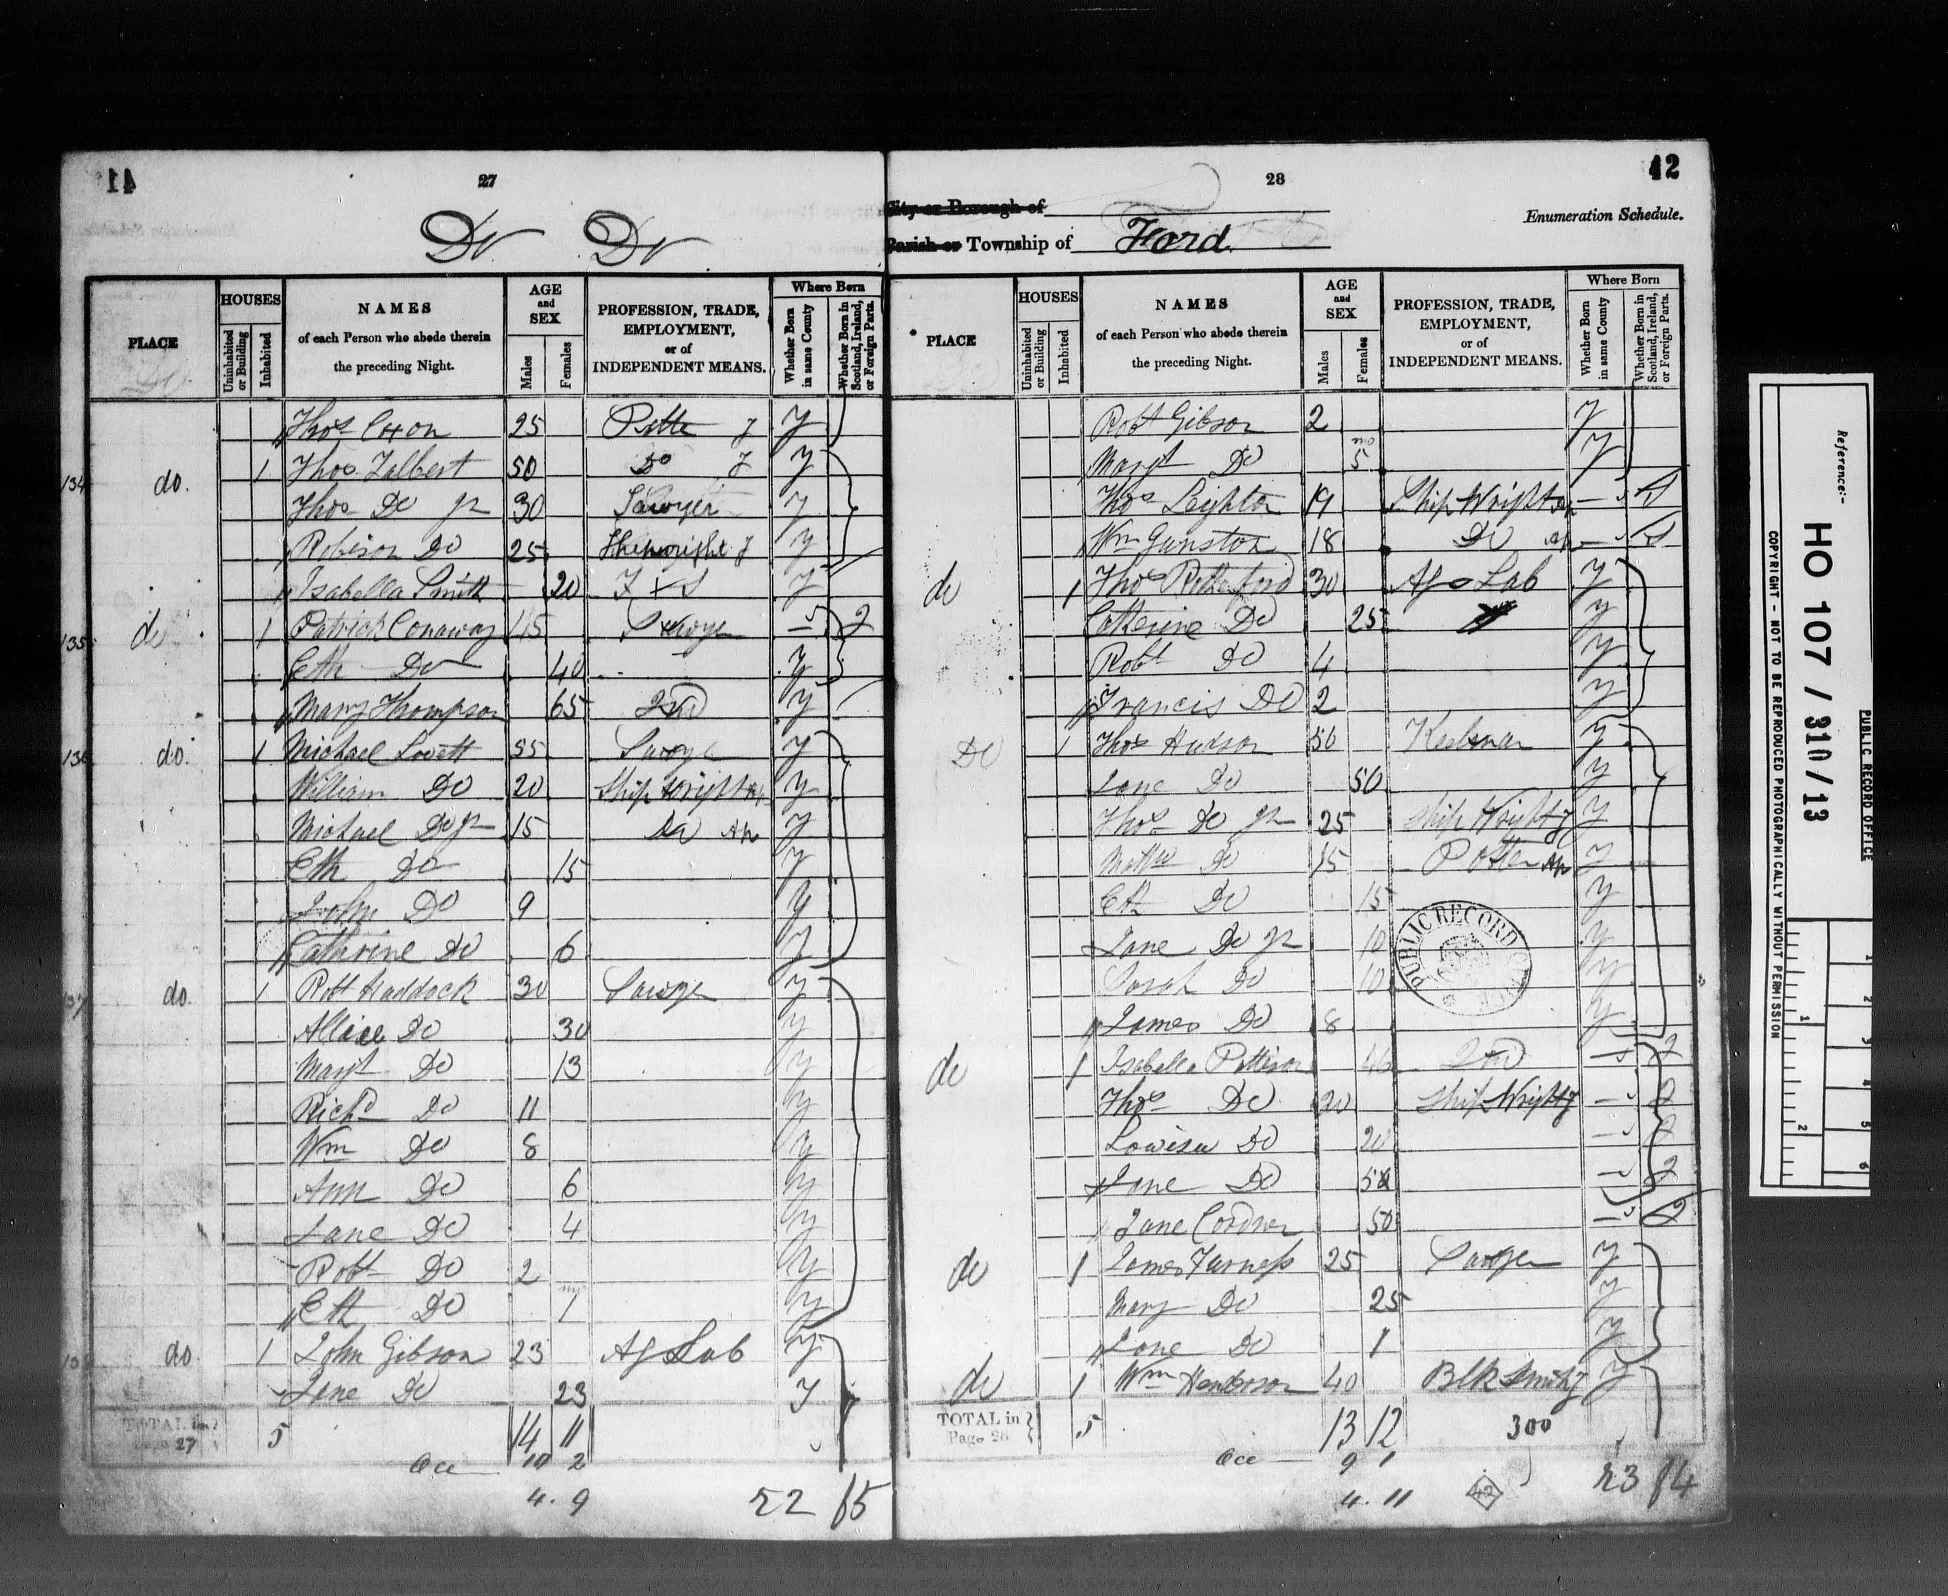 41
27
Do Do
PLACE
HOUSES
Uninhabited or Building
Inhabited
NAMES
of each Person who abode therein
the preceding Night.
AGE
and
SEX
Males
Females
PROFESSION, TRADE,
EMPLOYMENT,
or of
INDEPENDENT MEANS.
Where Born
Whether Born in same County
Whether Born in Scotland, Ireland, or Foreign Parts.
Thos Coxon 25 J y
134 do. 1 Thos Talbert 50 Do J y
Thos Do Jr 30 Sawyer y
Robison Do 25 Shipwright J y
Isabella Smith 20 F S y
135 do 1 Patrick Conaway 45 Sawyer J
Eth Do 40 y
Mary Thompson 65 Ind y
136 do. 1 Michael Lovett 55 Sawyer y
William Do 20 Ship Wright Ap y
Michael Do Jr 15 Do Ap y
Eth Do 15 y
John Do 9 y
Cathrine Do 6 y
137 do. 1 Robt Haddock 30 Sawyer y
Allice Do 30 y
Margt Do 13 y
Richd Do 11 y
Wm Do 8 y
Ann Do 6 y
Jane Do 4 y
Robt Do 2 y
Eth Do 1 y
do. 1 John Gibson 23 Ag Lab y
Jane Do 23 y
TOTAL in Page 27 5 14 11
Occ 10 2
4. 9 22 f5
42
28
City or Borough of
Parish or Township of Ford.
Enumeration Schedule.
PLACE
HOUSES
Uninhabited or Building
Inhabited
NAMES
of each Person who abode therein
the preceding Night.
AGE
and
SEX
Males
Females
PROFESSION, TRADE,
EMPLOYMENT,
or of
INDEPENDENT MEANS.
Where Born
Whether Born in same County
Whether Born in Scotland, Ireland, or Foreign Parts.
Robt Gibson 2 y
Margt Do 5 mo y
Thos Leighton 19 Ship Wright Ap S
Wm Gunston 18 Do Ap S
do 1 Thos Rotherford 30 Ag Lab y
Catherine Do 25 y
Robt Do 4 y
Francis Do 2 y
Do 1 Thos Hudson 50 Keelman y
Jane Do 50 y
Thos Do Jr 25 Ship Wright J y
Matthw Do 15 Potter Ap y
Eth Do 15 y
Jane Do Jr 10 y
Sarah Do 10 y
James Do 8 y
do 1 Isabella Pattison Ind J
Thos Do 20 Ship Wright J J
Louisa Do 20 J
Jane Do J
Jane Cordner 50 J
do 1 James Furness 25 Sawyer y
Mary Do 25 y
Jane Do 1 y
do 1 Wm Henderson 40 Blk Smith J y
TOTAL in Page 28 5 13 12 300
Occ 9 1
4. 11 42 23 f4
PUBLIC RECORD OFFICE
Reference:-
HO 107 / 310 / 13
PUBLIC RECORD OFFICE
COPYRIGHT - NOT TO BE REPRODUCED PHOTOGRAPHICALLY WITHOUT PERMISSION
1 2 3 4 5 6
1 2